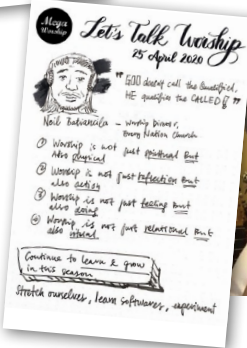 Mega
Worship
Let's Talk Worship
25 April 2020
"GOD doesn't call the Qualified,
HE qualifies the CALLED!"
Neil
Worship
Nation Church
① Worship is not just spiritual But
also physical
② Worship is not just reflection But
also action
③ Worship is not just feeling But
also doing
④ Worship is not just relational But
also
Continue to learn & grow
in this season
Stretch ourselves, learn softwares, experiment